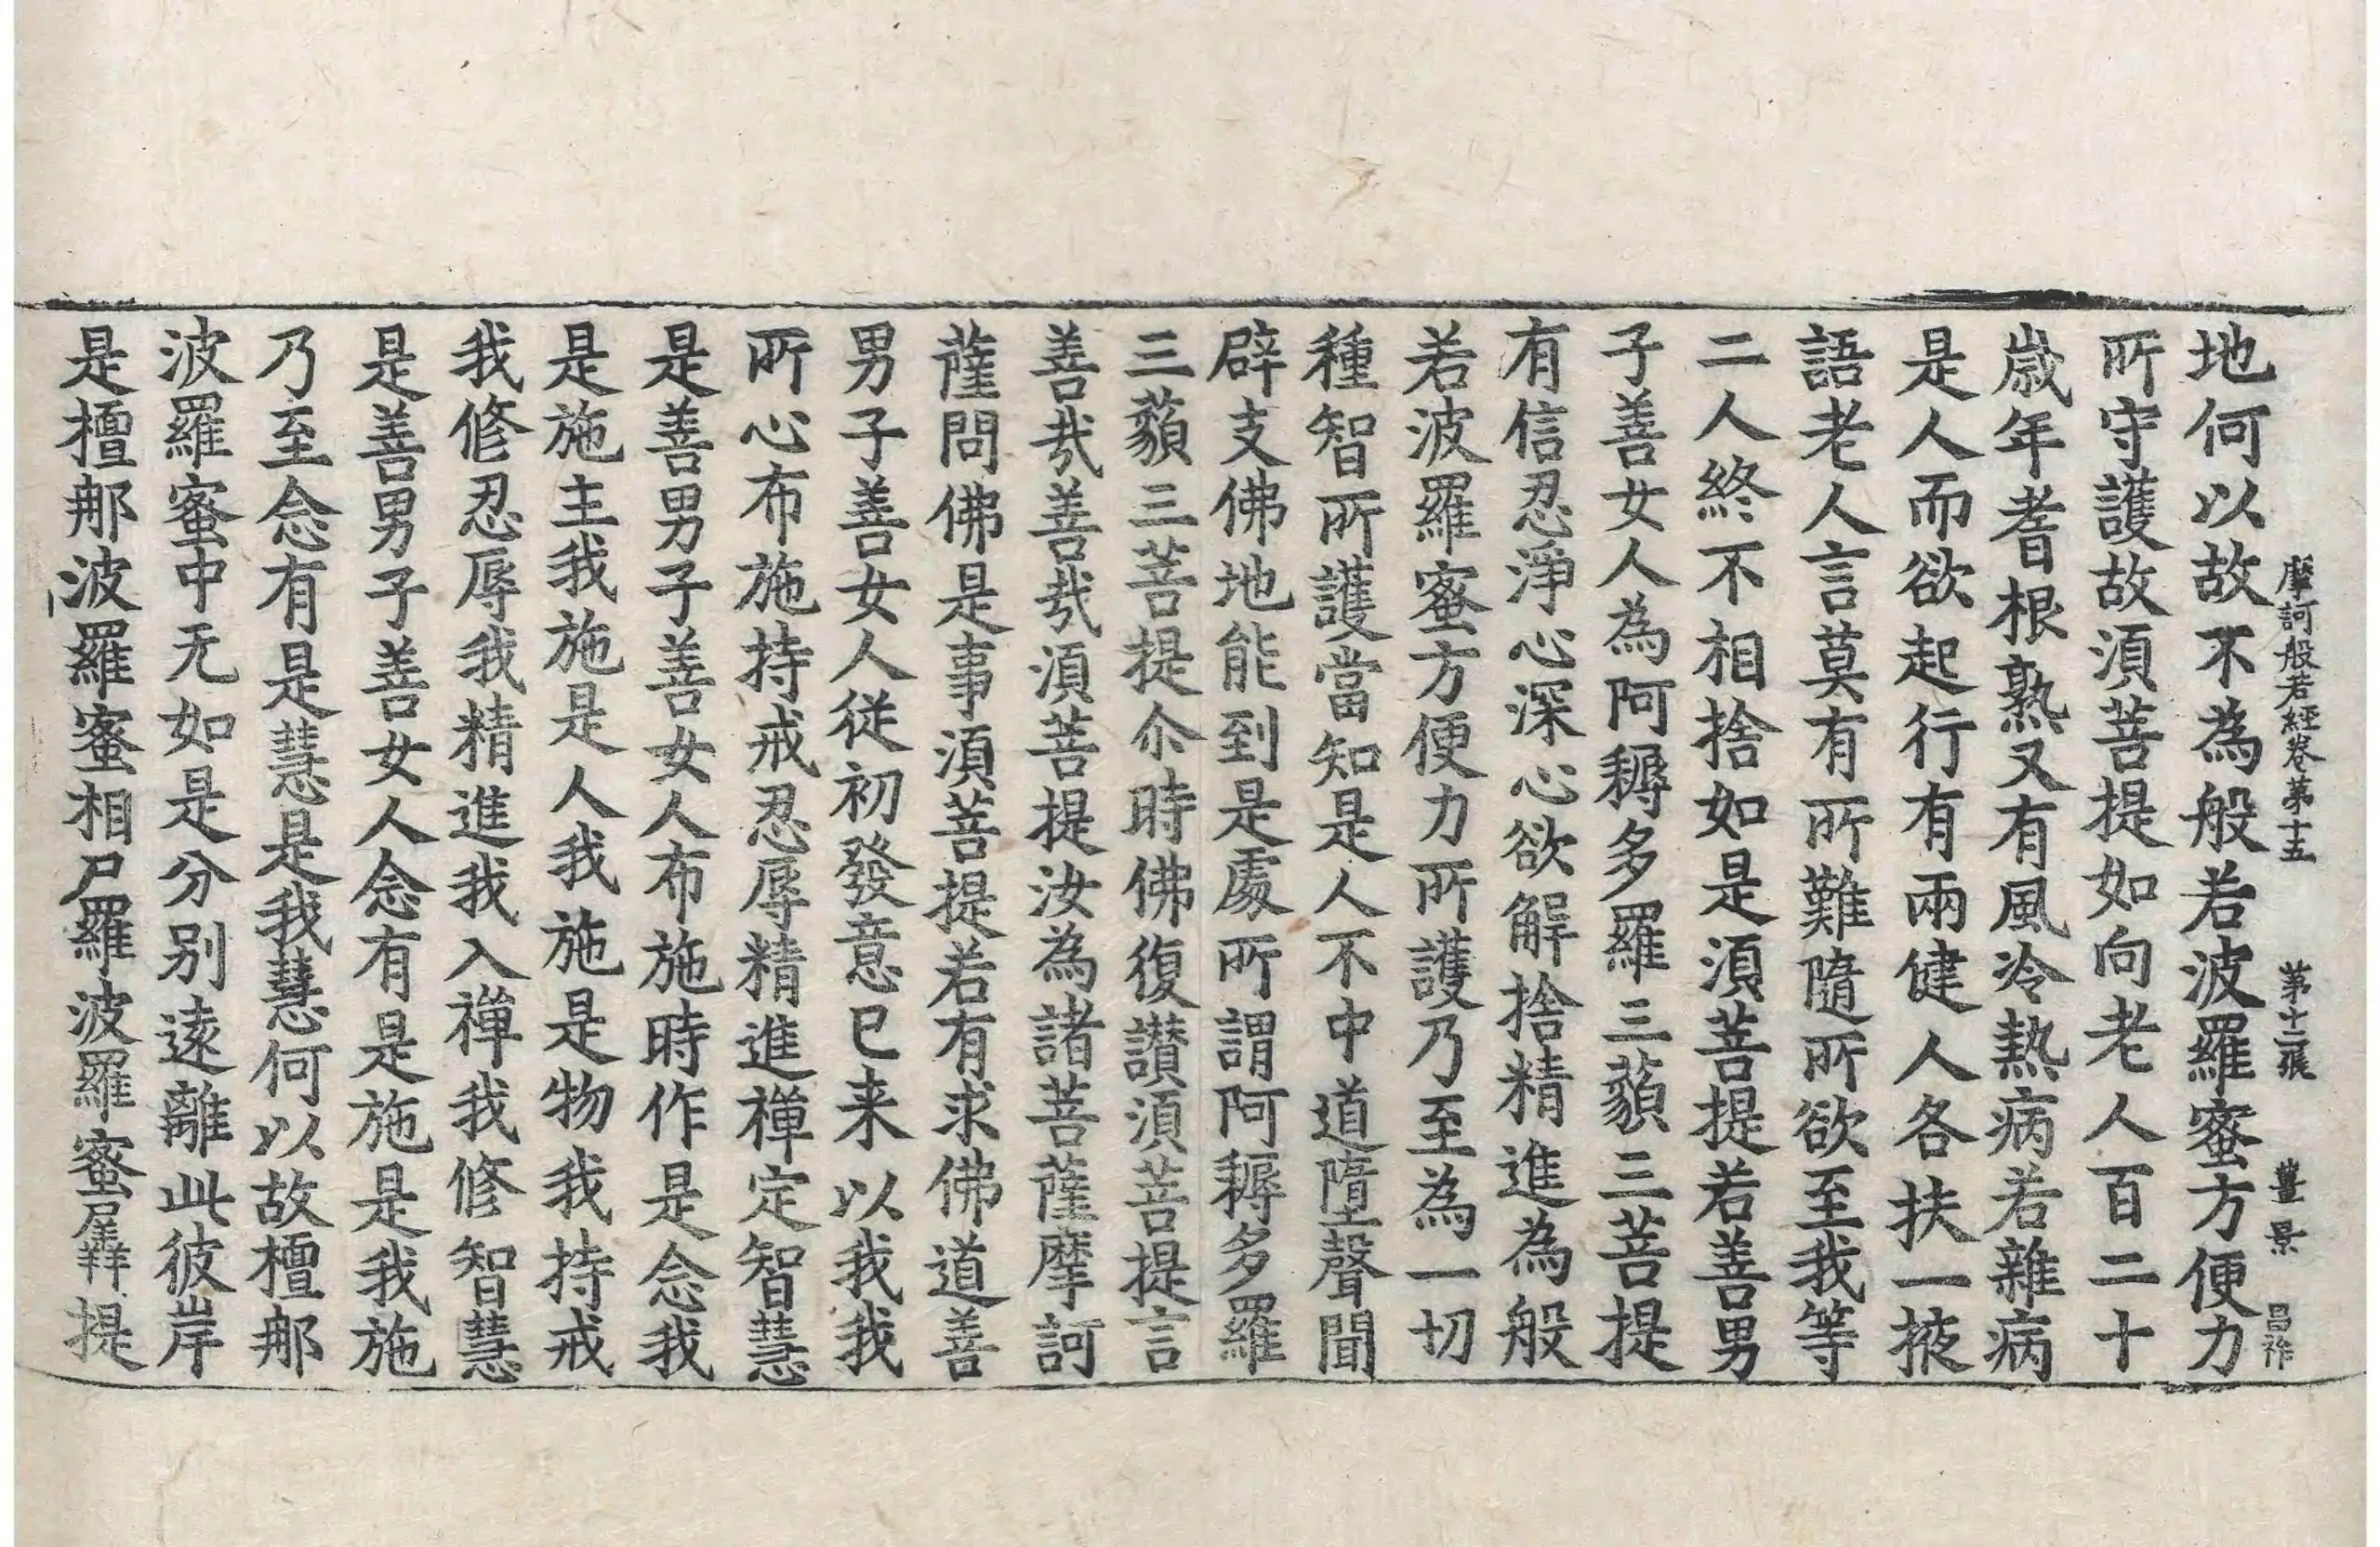 摩訶般若經卷第十五 第十二張 豊景 昌祚
地何以故不為般若波羅蜜方便力
所守護故湏菩提如向老人百二十
歳年耆根熟又有風冷熱病若雜病
是人而欲起行有兩健人各扶一掖
語老人言莫有所難隨所欲至我等
二人終不相捨如是湏菩提若善男
子善女人為阿耨多羅三藐三菩提
有信忍淨心深心欲解捨精進為般
若波羅蜜方便力所護乃至為一切
種智所護當知是人不中道墮聲聞
辟支佛地能到是處所謂阿耨多羅
三藐三菩提尒時佛復讃湏菩提言
善㢤善㢤湏菩提汝為諸菩薩摩訶
薩問佛是事湏菩提若有求佛道善
男子善女人従初發意已来以我我
所心布施持戒忍辱精進禪定智慧
是善男子善女人布施時作是念我
是施主我施是人我施是物我持戒
我修忍辱我精進我入禪我修智慧
是善男子善女人念有是施是我施
乃至念有是慧是我慧何以故檀那
波羅蜜中无如是分别逺離此彼岸
是檀那波羅蜜相尸羅波羅蜜羼提